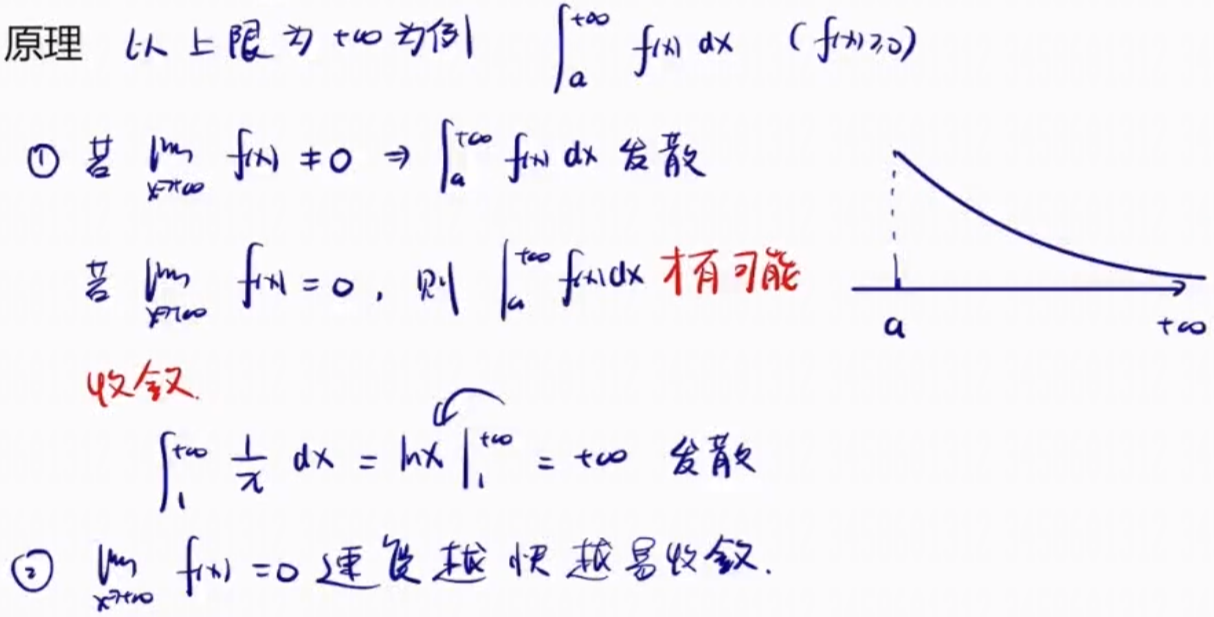 原理 以上限为+∞为例 ∫_a^{+∞} f(x) dx (f(x)≥0)
① 若 lim_{x→+∞} f(x) ≠ 0 ⇒ ∫_a^{+∞} f(x) dx 发散
若 lim_{x→+∞} f(x) = 0, 则 ∫_a^{+∞} f(x) dx 才有可能
收敛.
a +∞
∫_1^{+∞} 1/x dx = ln x |_1^{+∞} = +∞ 发散
② lim_{x→+∞} f(x) = 0 速度越快越易收敛.